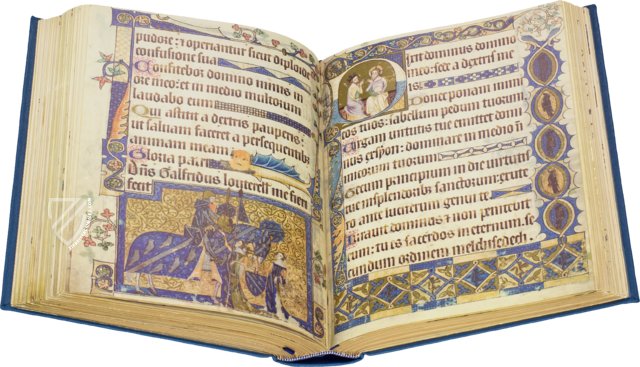 pudore: ⁊ operiantur sicut diploide
confusione sua
Confitebor domino nimis in
ore meo: et in medio multorum
laudabo eum
Qui astitit a dextris pauperis:
ut saluam faceret a persequentibus
animam meam
Gloria patri
Dn̄s Galfridus louterell me fieri
fecit
Dixit dominus domino
meo: sede a dextris me
is
Donec ponam inimi
cos tuos: scabellum pedum tuorum
Virgam uirtutis tue emittet domi
nus ex syon: dominare in medio in
imicorum tuorum
Tecum principium in die uirtutis
tue in splendoribus sanctorum: ex ute
ro ante luciferum genui te
Iurauit dominus ⁊ non penitebit
eum: tu es sacerdos in eternum se
cundum ordinem melchisedech